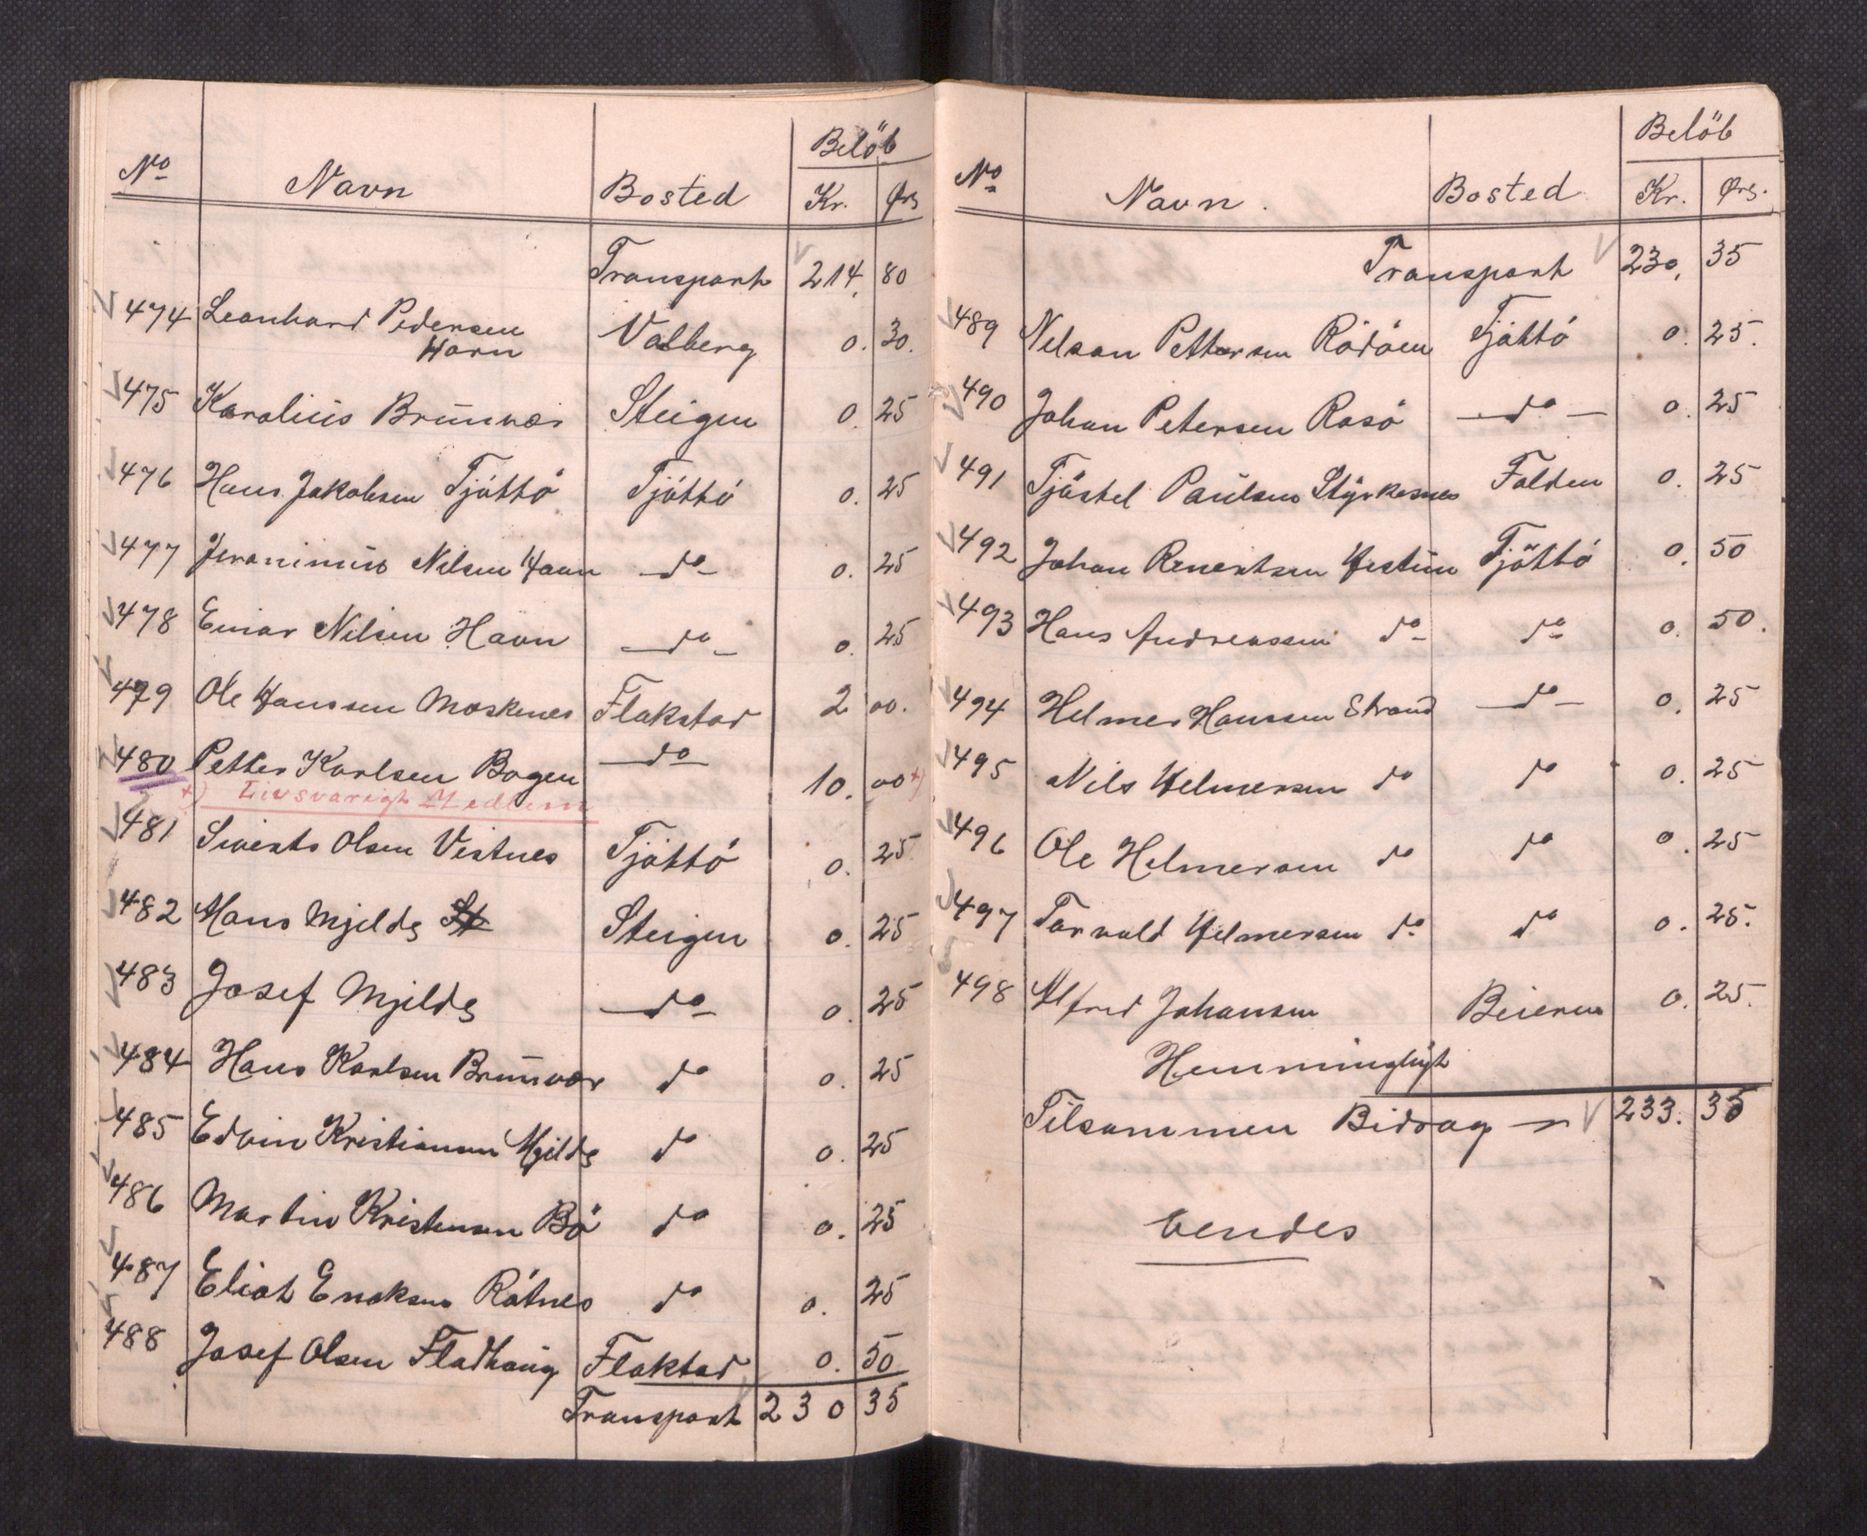 No Navn Bosted Belöb
Kr. Øre
Transport 214, 80
474 Leonhard Pedersen
Horn Valberg 0. 30.
475 Karolius Brunvær Steigen 0. 25
476 Hans Jakobsen Tjöttö Tjöttö 0. 25
477 Jeronimus Nilsen Havn do 0. 25
478 Einar Nilsen Havn do 0. 25
479 Ole Hanssen Moskenes Flakstad 2 00.
480 Petter Karlsen Bogen do 10. 00 +)
+) Livsvarigt Medlem
481 Siverts Olsen Vistnes Tjöttö 0. 25
482 Hans Mjelde Steigen 0. 25
483 Josef Mjelde do 0. 25
484 Hans Karlsen Brunvær do 0. 25
485 Edvin Kristiansen Mjelde do 0. 25
486 Martin Kristensen Bö do 0. 25
487 Eliot Enoksen Rötnes do 0. 25
488 Josef Olsen Fladhaug Flaktad 0. 50
Transport 230 35
No Navn. Bosted Belöb
Kr. Øre.
Transport 230, 35
489 Nelson Pettersen Rödöen Tjöttö 0. 25.
490 Johan Petersen Rosö do 0. 25
491 Tjöstel Paulsen Styrkesnes Folden 0. 25
492 Johan Renertsen Hestun Tjöttö 0. 50
493 Hans Andreassen do do 0. 50.
494 Helmer Hanssen Strand do 0. 25
495 Nils Helmersen do do 0. 25
496 Ole Helmersen do do 0. 25
497 Torvald Helmersen do do 0. 25.
498 Alfred Johansen Beieren 0. 25.
Hemminglygt
Tilsammen Bidrag 233. 35
vendes